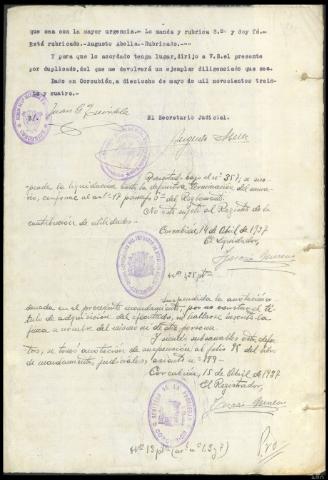 que sea con la mayor urgencia.- Lo manda y rubrica S.Sª y doy fé.
Está rubricado.- Augusto Abella.-Rubricado.---
Y para que lo acordado tenga lugar, dirijo a V.S. el presente
por duplicado, del que me devolverá un ejemplar diligenciado que sea.
Dado en Corcubión, a dieciocho de mayo de mil novecientos trein-
ta y cuatro.
El Secretario Judicial.
Augusto Abella
Presentado bajo el nº 357, e sus-
la liquidación hasta la definitiva terminación del
conforme al artº 17 parrafo 5º del Reglamento.
No está sujeto al Registro de la
contribución de utilidades.
Corcubión 14 de Abril de 1937
El Liquidador,
Suspendida la anotación or-
denada en el precedente mandamiento, por no constar el tí-
tulo de adquisicion del ejecutado, y hallarse inscrita la
finca a nombre del mismo ni de otra persona.
Y siendo subsanables estos defec-
tos, se tomó anotación de suspension al folio 95 del libro
de mandamientos judiciales, asiento nº 189.
Corcubión, 15 de Abril de 1937
El Registrador,